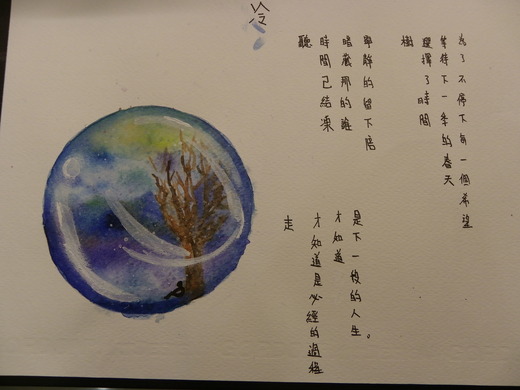 冷
為了不停下每一個希望
等待下一季的春天
選擇了時間
樹
寧靜的留下陪
暗藏那的誰
時間已結凍
聽
是下一段的人生。
才知道
才知道是必經的過程
走